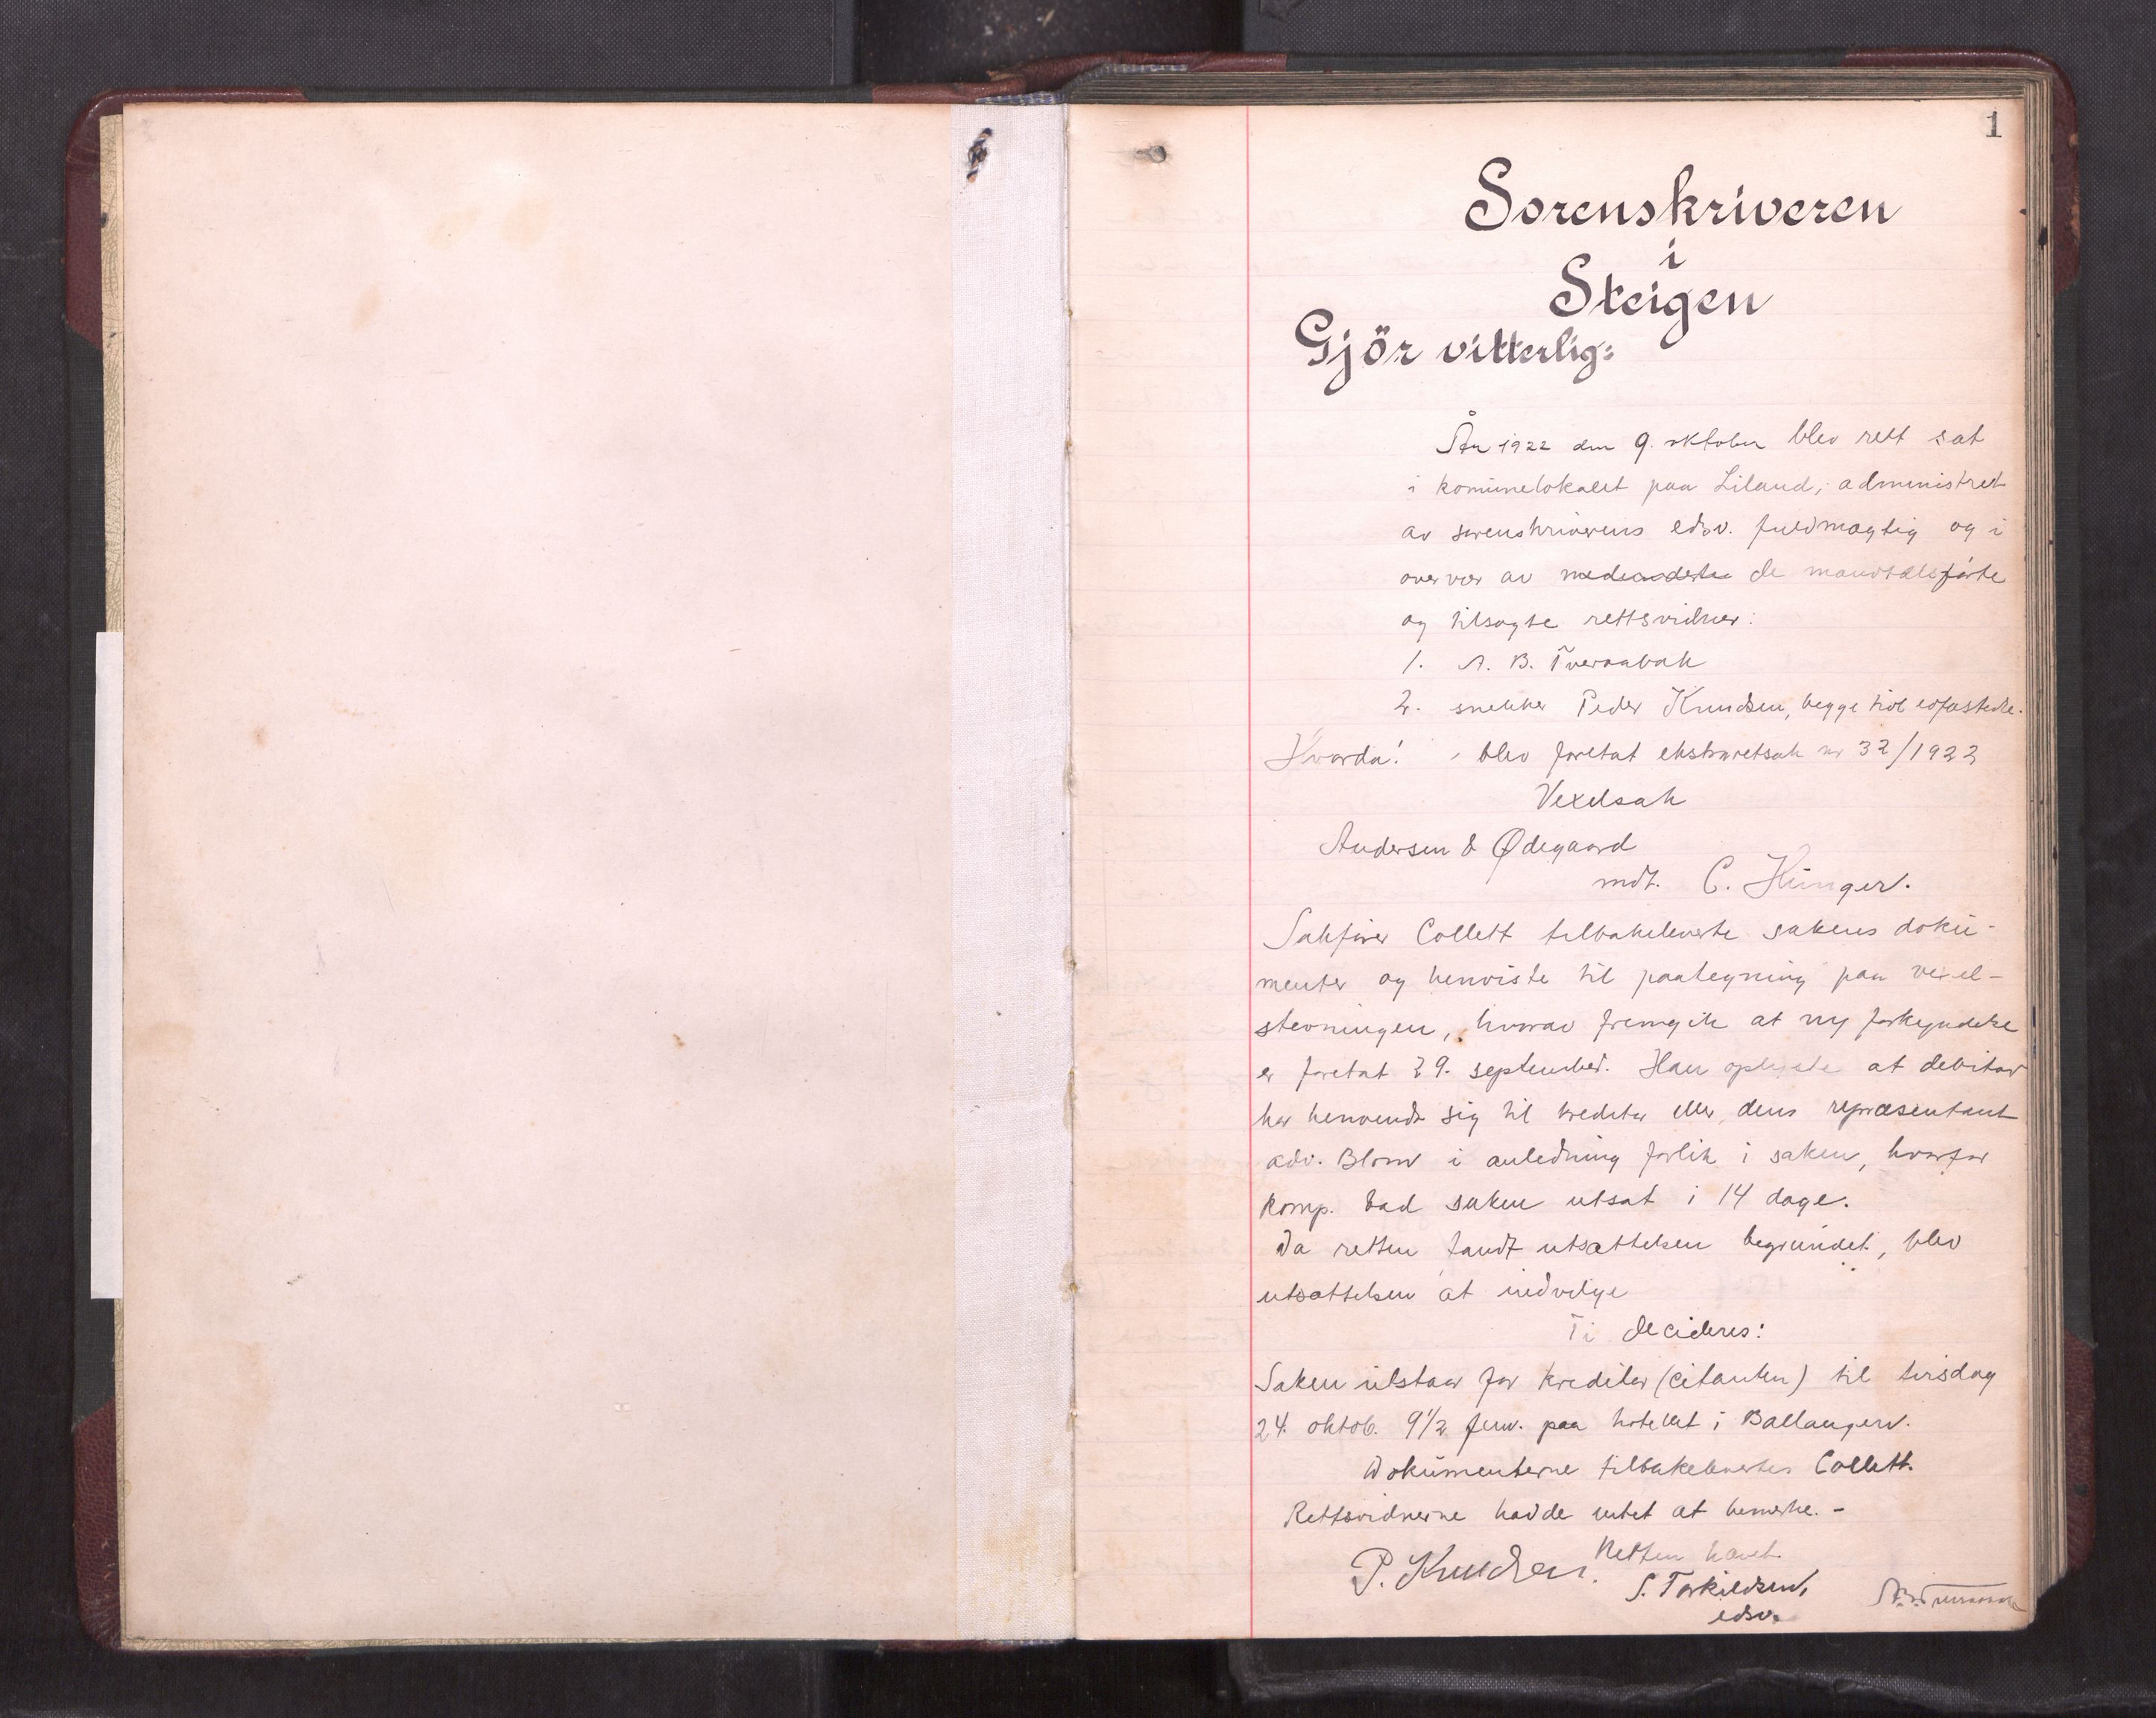 1
Sorenskriveren
i
Steigen
Gjör vitterlig:
År 1922 den 9. oktober blev rett sat
i komünelokalet paa Liland, administret
av sorenskriverens edsv. fuldmægtig og i
overvær av de mandtalsførte
og tilsagte rettsvidner:
1. A. B. Tveraabak
2. snekker Peder Knudsen, begge
Hvorda! - blev foretat ekstraretsak nr 32/1922
Vexelsak
Andersen & Ødegaard
mdt. C. Künger.
Sakfører Collett tilbakeleverte sakens dokü-
menter og henviste til paategning paa vexel-
stevningen, hvorav fremgik at ny forkyndelse
er foretat 29. september. Han oplyste at debitor
har henvendt sig til kreditor eller dens repræsentant
adv. Blom i anledning forlik i saken, hvorfor
komp. bad saken utsat i 14 dage.
Da retten fandt utsættelsen begründet, blev
utsættelsen at indvilge
Ti decideres:
Saken utstaar for kreditor (citanten) til tirsdag
24. oktob. 9½ fm. paa hotellet i Ballangen.
Dokümenterne tilbakelevertes Collett.
Rettsvidnerne hadde intet at bemerke. -
Retten hævet.
P. Knudsen.
S. Torkildsen,
edsv.